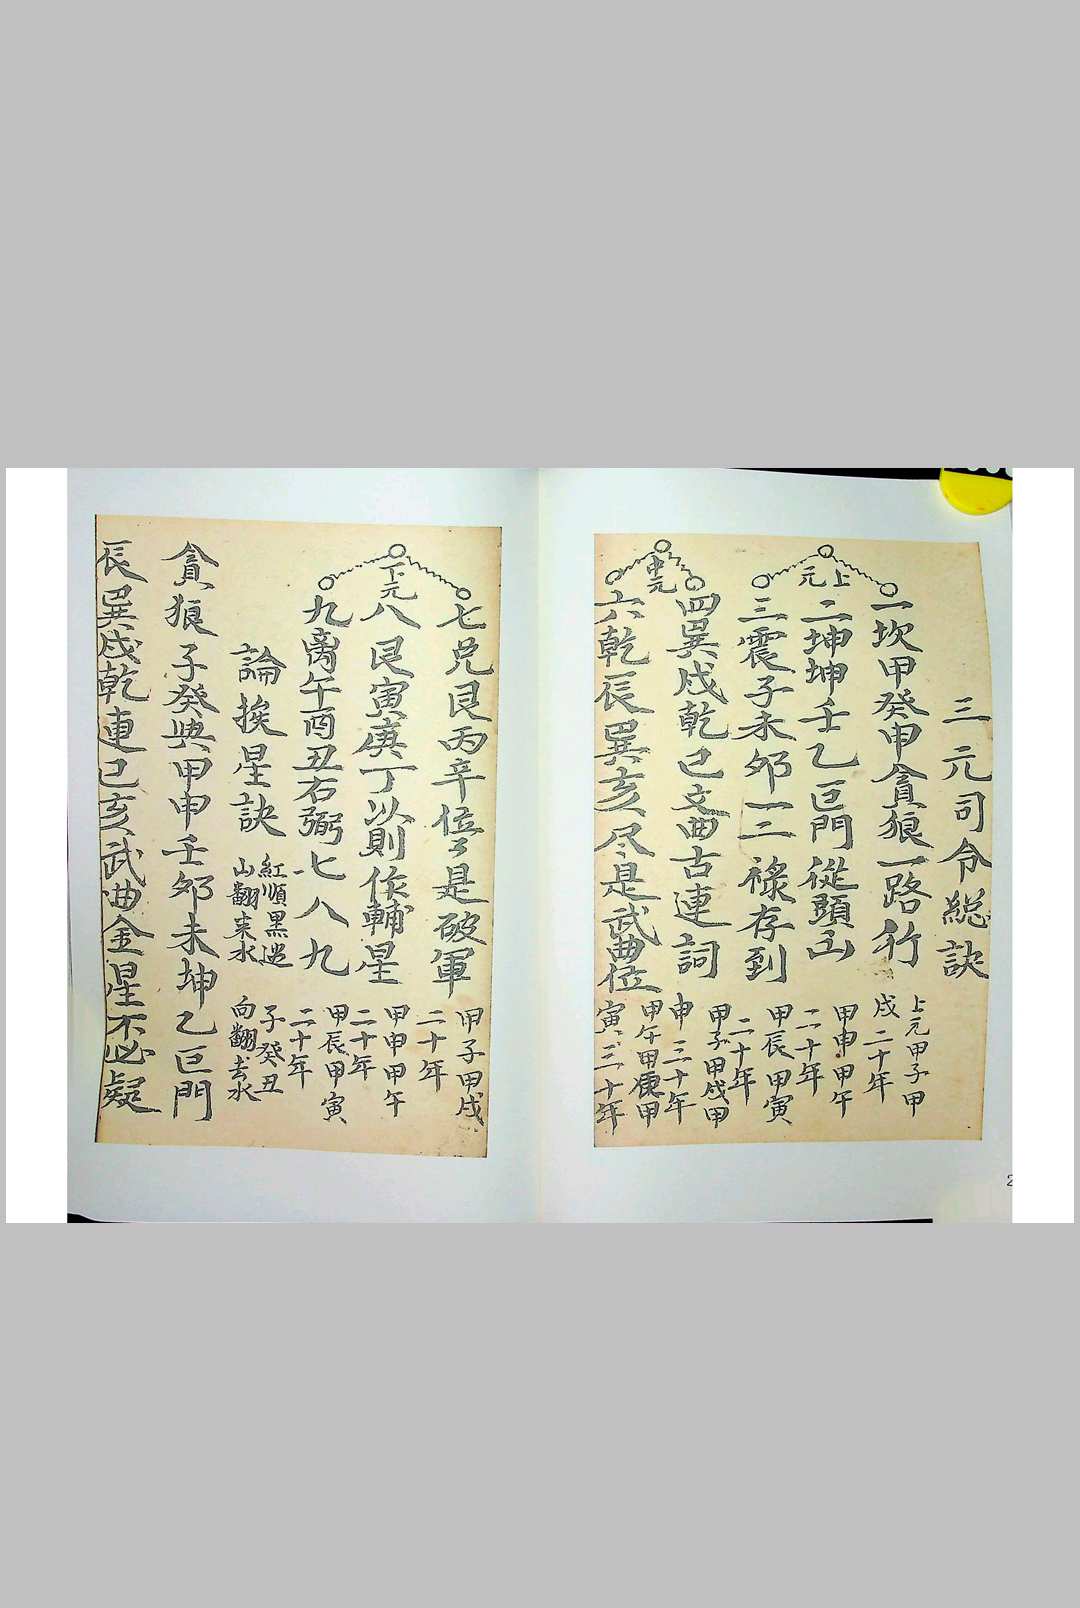 三元司令総訣
上元
一坎甲癸申貪狼一路行
上元甲子甲
戌二十年
二坤坤壬乙巨門從頭出
甲申甲午
二十年
三震子未夘一三祿存到
甲辰甲寅
二十年
中元
四巽戌乾巳文曲古連詞
甲子甲戌甲
申三十年
六乾辰巽亥尽是武曲位
甲午甲甲
寅三十年
下元
七兌艮丙辛位々是破軍
甲子甲戌
二十年
八艮寅庚丁以則作輔星
甲申甲午
二十年
九离午酉丑右弼七八九
甲辰甲寅
二十年
論挨星訣
紅順黒逆 子癸丑
山翻来水 向翻去水
貪狼子癸與甲申壬夘未坤乙巨門
辰巽戌乾連巳亥武曲金星不必疑